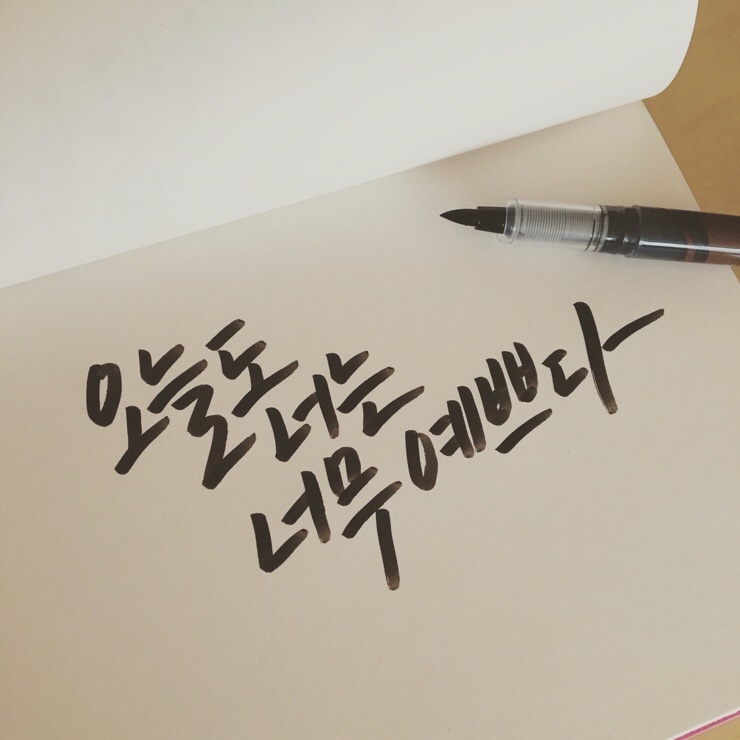 오늘도 너는
너무 예쁘다